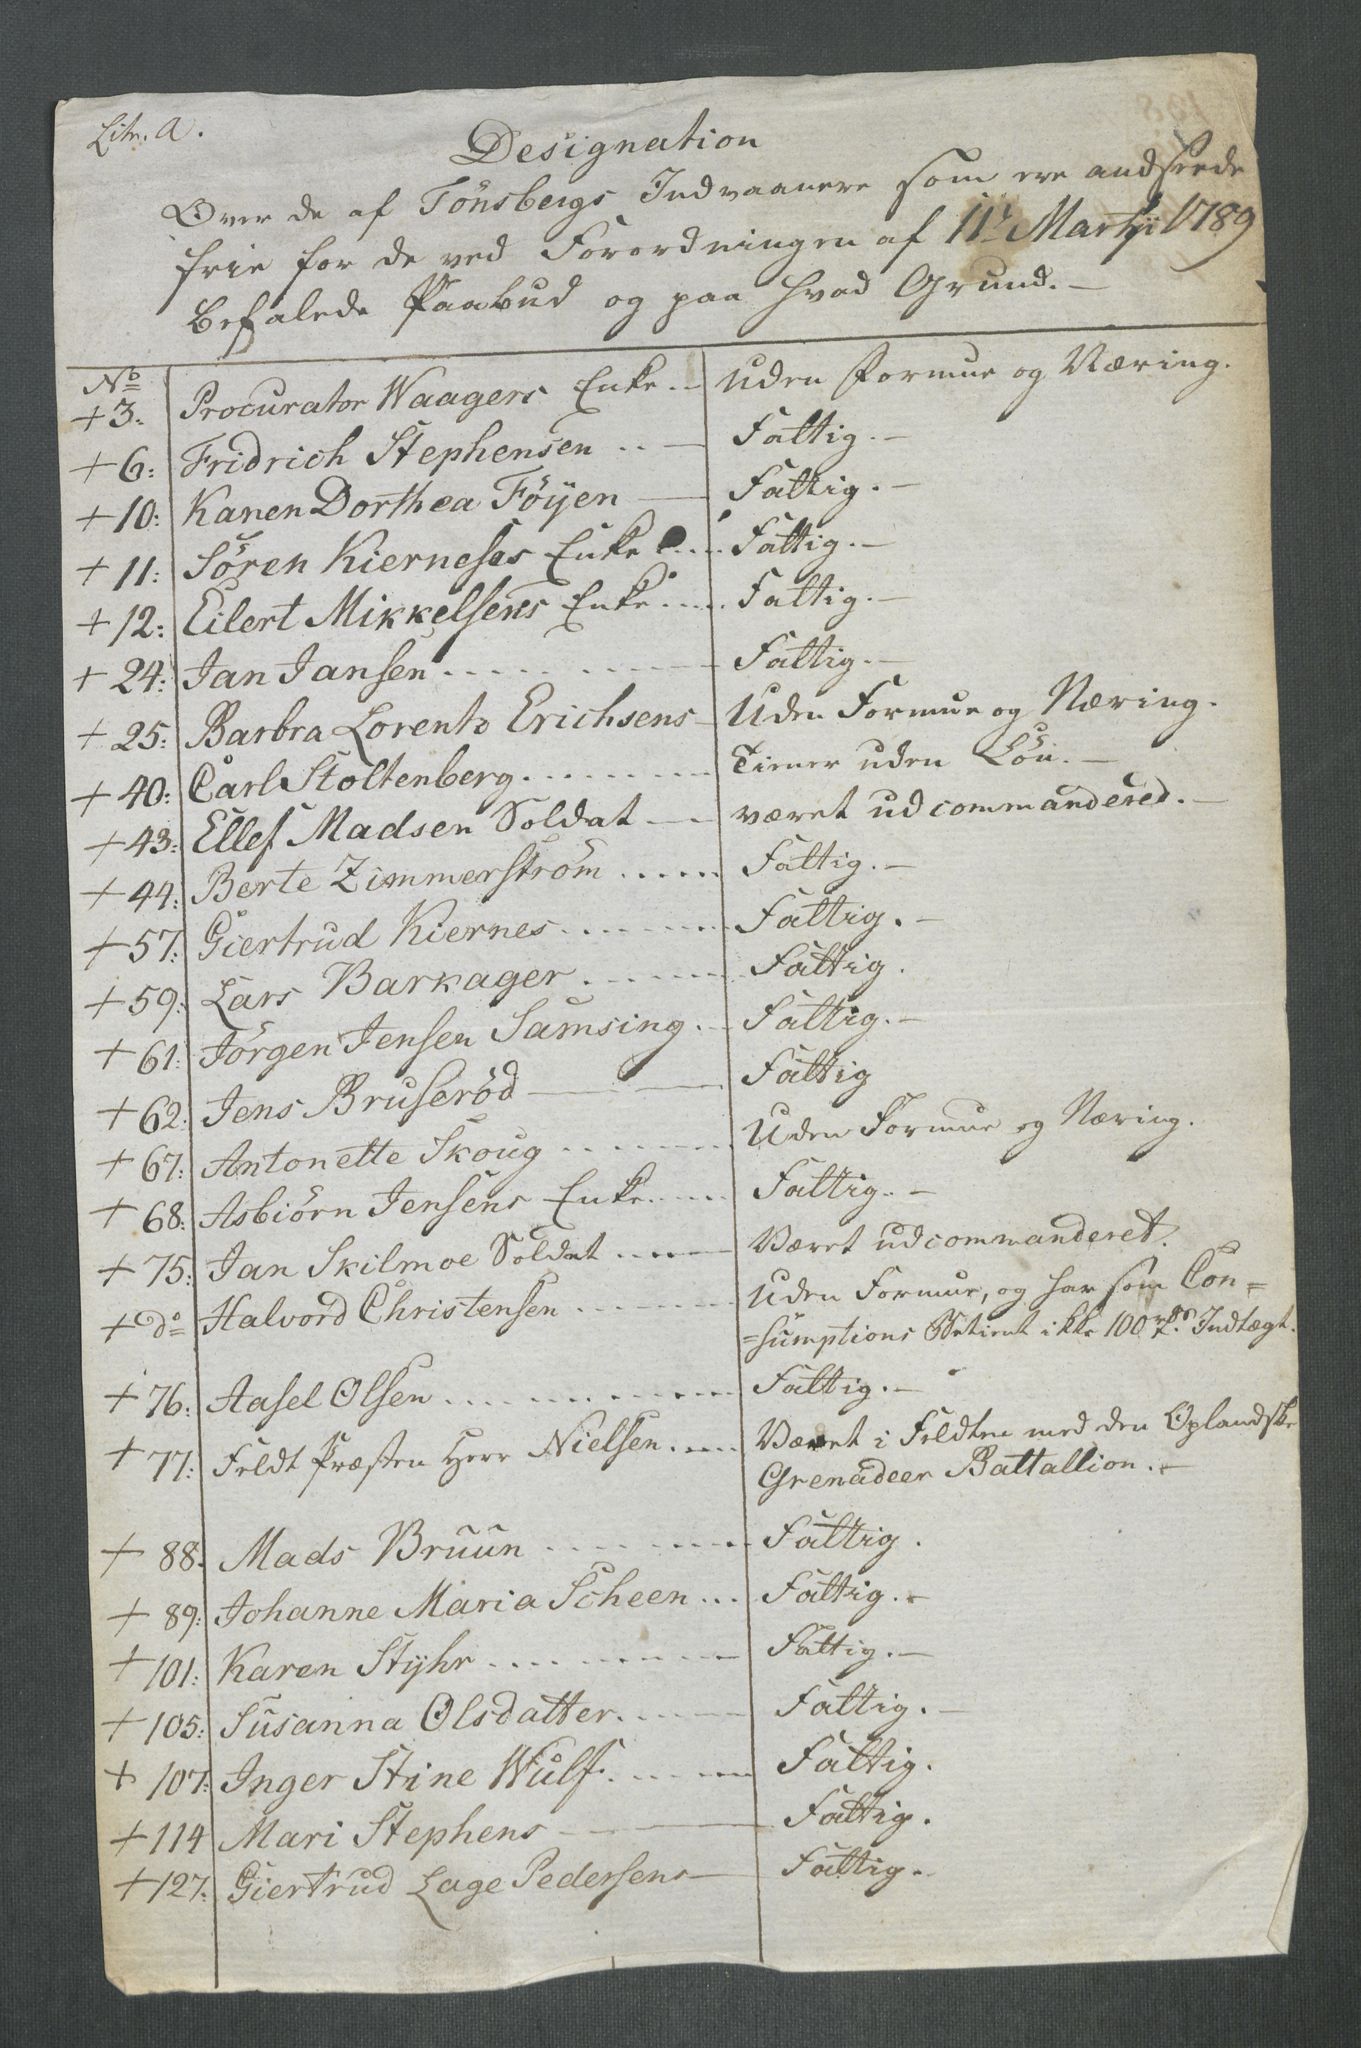 Litr. A.
Designation
Over de af Tönsbergs Indvaanere som ere andseede
frie for de ved Forordningen af 11t Martii 1789
befalede Paabud og paa hvad Grund. –
No
+ 3: Procurator Waagers Enke .. Uden Formue og Næring.
+ 6: Fridrich Stephensen .. – Fattig. –
+ 10: Karen Dorthea Föyen – Fattig. –
+ 11: Sören Kierneses Enke .... Fattig. –
+ 12: Eilert Mikkelsens Enke ..... Fattig. –
+ 24: Jan Jansen ......... Fattig. –
+ 25: Barbra Lorentz Erichsens – Uden Formue og Næring.
+ 40: Carl Stoltenberg ........ Tiener uden Lön. –
+ 43: Ellef Madsen Soldat – været udcommandered. –
+ 44: Berte Zimmerström ...... Fattig. –
+ 57: Giertrud Kiernes ....... Fattig. –
+ 59: Lars Barkager ...... Fattig.
+ 61: Jörgen Jensen Samsing .. Fattig. –
+ 62: Jens Bruseröd – Fattig
+ 67: Antonette Skoug ....... Uden Formue og Næring.
+ 68: Asbiörn Jensens Enke ..... Fattig. –
+ 75: Jan Skilmoe Soldat ..... Været udcommanderet.
+ do Halvord Christensen ....... Uden Formue, og har som Con=
=sumptions Betient ikke 100 rdr. Indtægt.
+ 76: Aasel Olsen .......... Fattig. –
+ 77: Feldt Præsten Herr Nielsen ..... Været i Feldten med den Oplandske
Grenadeer Battallion. –
+ 88. Mads Bruun ........ Fattig.
+ 89: Johanne Maria Scheen ... Fattig. –
+ 101: Karen Styhr ......... Fattig. –
+ 105: Susanna Olsdatter ...... Fattig. –
+ 107: Inger Stine Wulf ....... Fattig.
+ 114 Mari Stephens – Fattig.
+ 127: Giertrud Lage Pedersens – Fattig. –